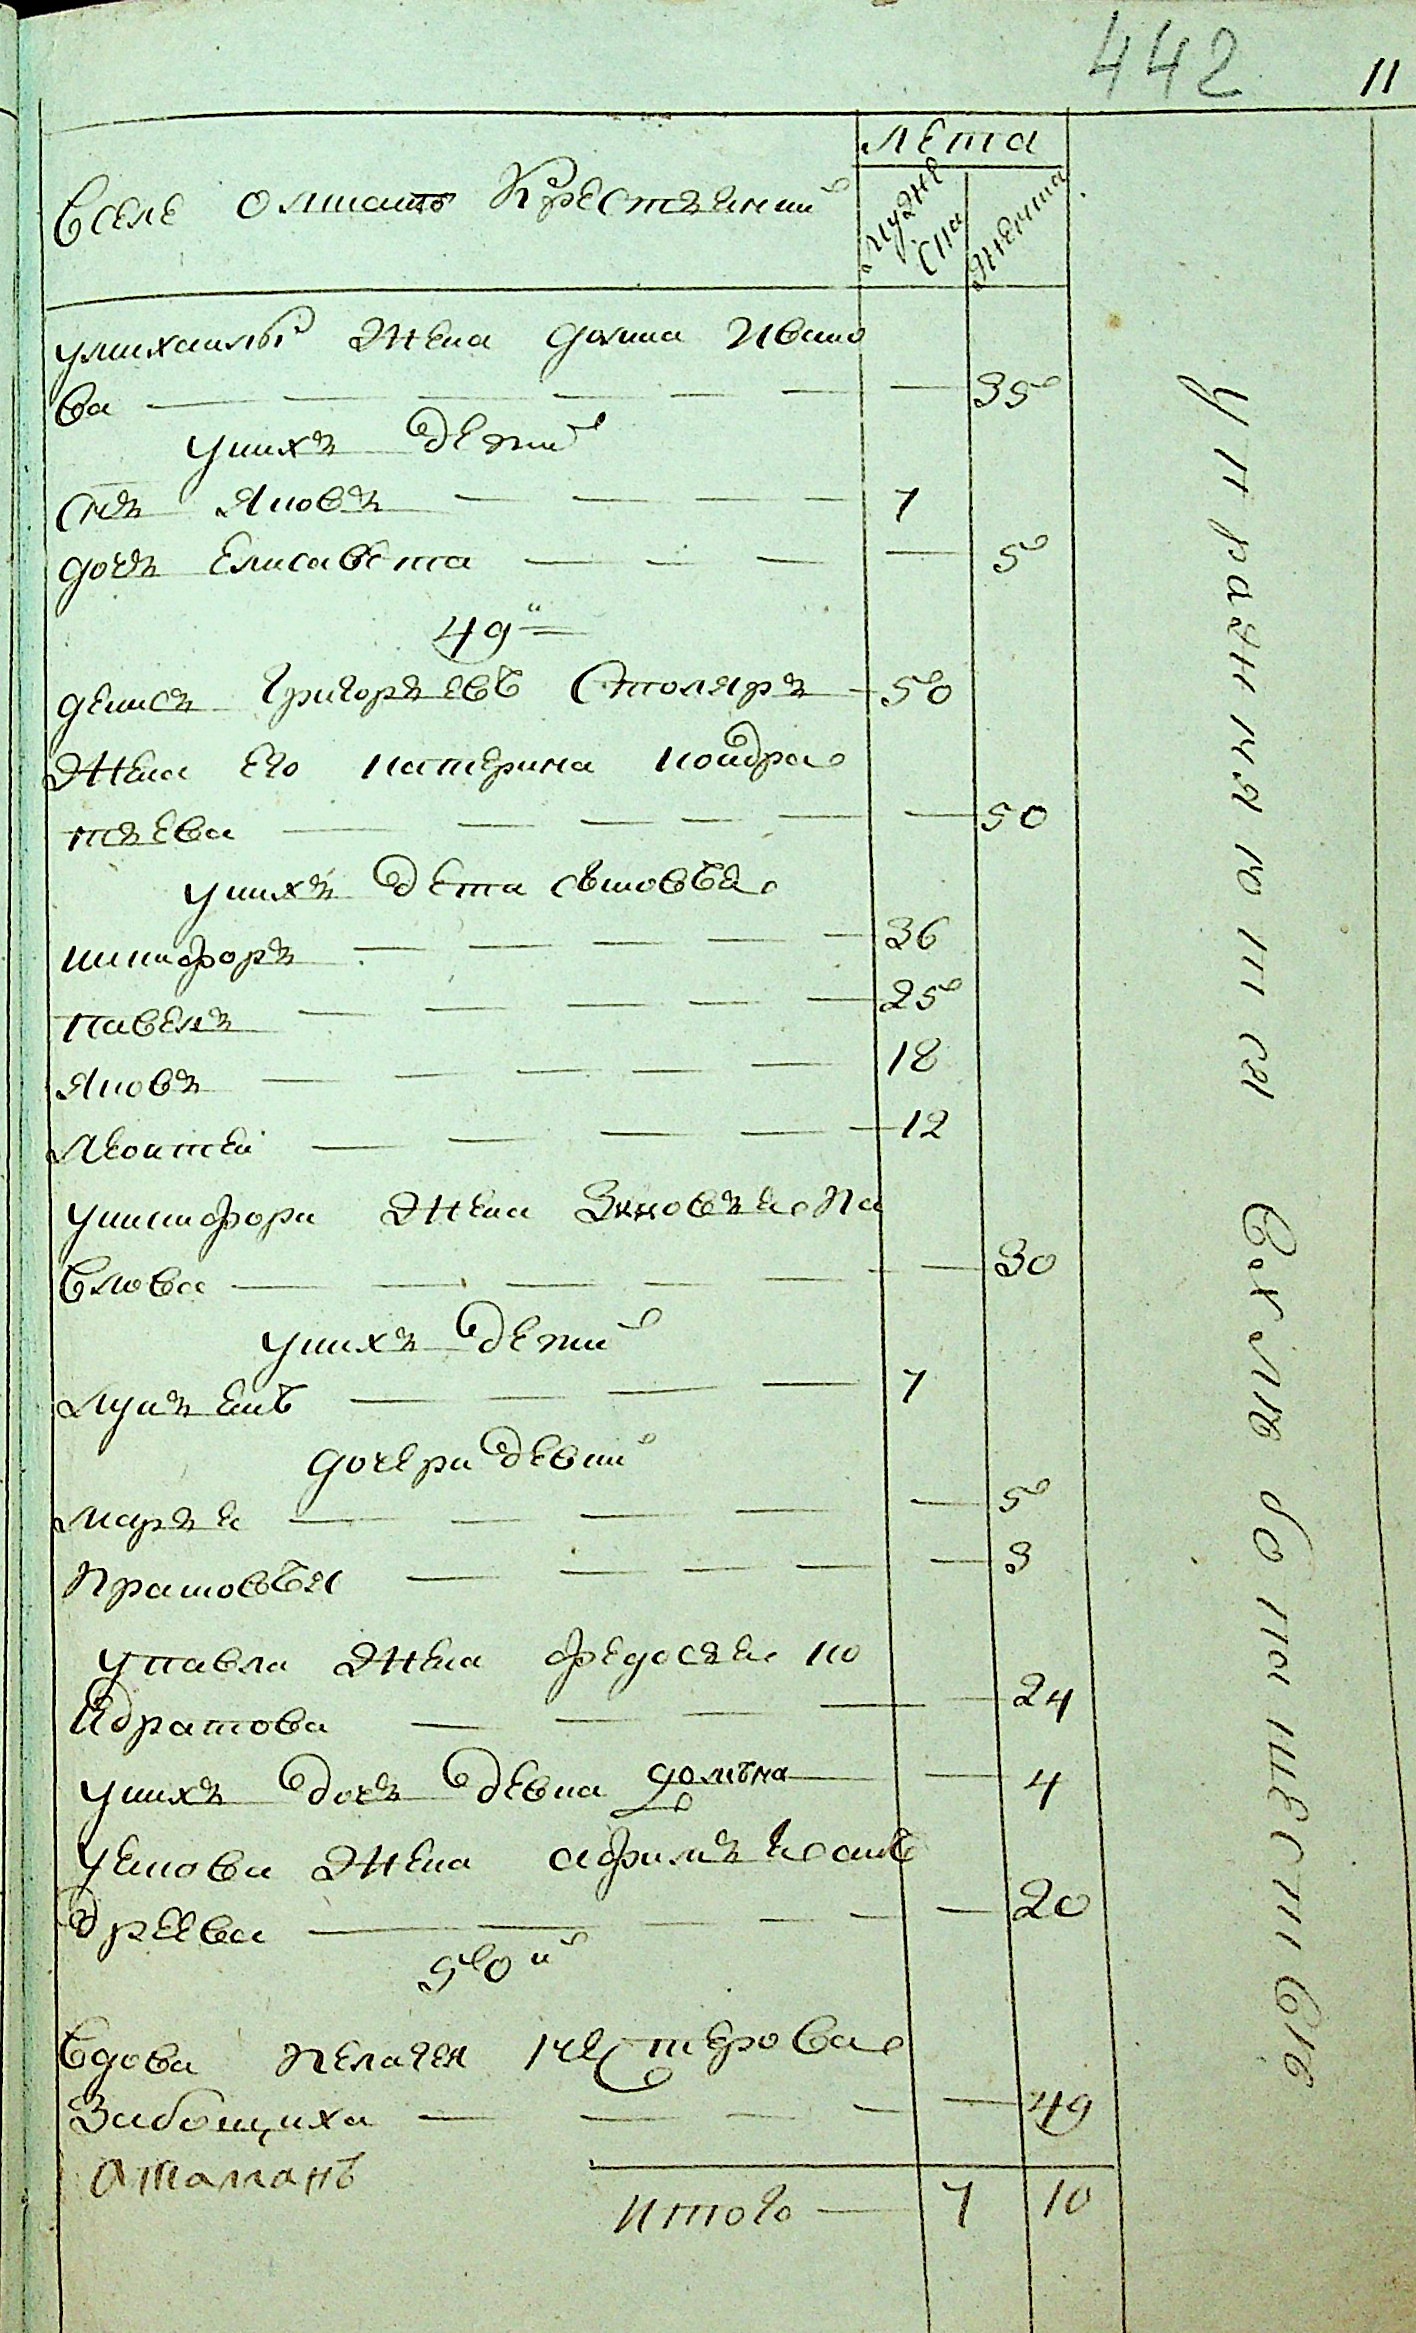 442
11
лета
Вселе Олшанъ Крестянии
мужеска
женска
умихаилы жена домна Ивано
ва — 35
унихъ детии
снъ Яковъ — 7
дочъ Елисавета — 5
49й
денисъ Григоръевъ Столяръ — 50
Жена Его катерина кондра
тъева — 50
унихъ дети сыновъя
никифоръ — 36
павелъ — 25
Яковъ — 18
Леонтеи — 12
уникифора жена Зиновъя Па
влова — 30
унихъ детии
Лукъянъ — 7
дочери девки
Маръя — 5
Прасковъя — 3
упавла жена федосъя ко
ндратова — 24
унихъ дочъ девка домъна — 4
уякова жена афимъя анъ
дреева — 20
50й
Вдова Пелагея нестерова
Забощиха — 49
Атаманъ
Итого — 7 10
упражняются
въ хлебопашестве